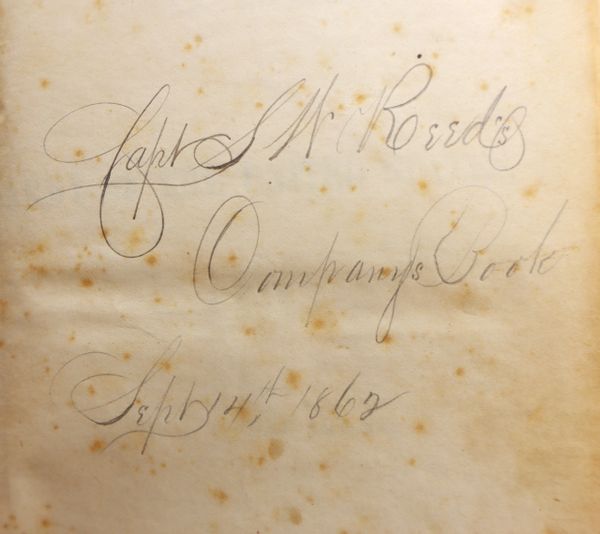 Capt S W Reed's
Company's Book
Sept 14th, 1862